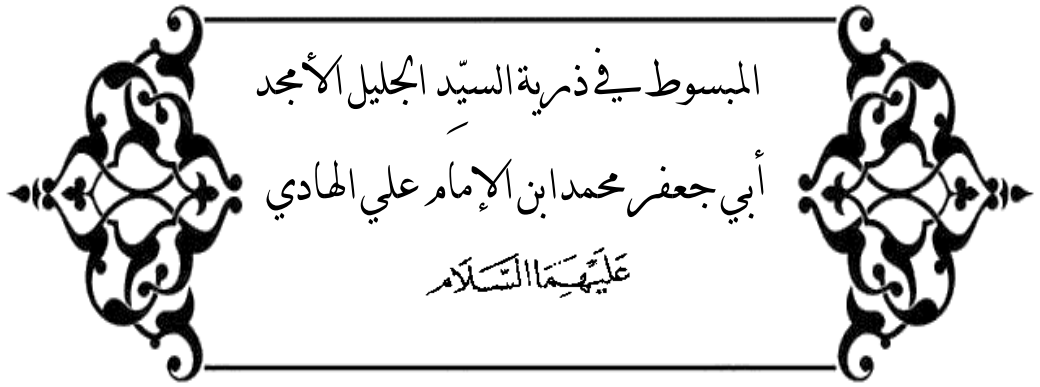 المبسوط في ذرية السيِّد الجليل الأمجد
أبي جعفر محمد ابن الإمام علي الهادي
عَلَيْهِمَا السَّلَام